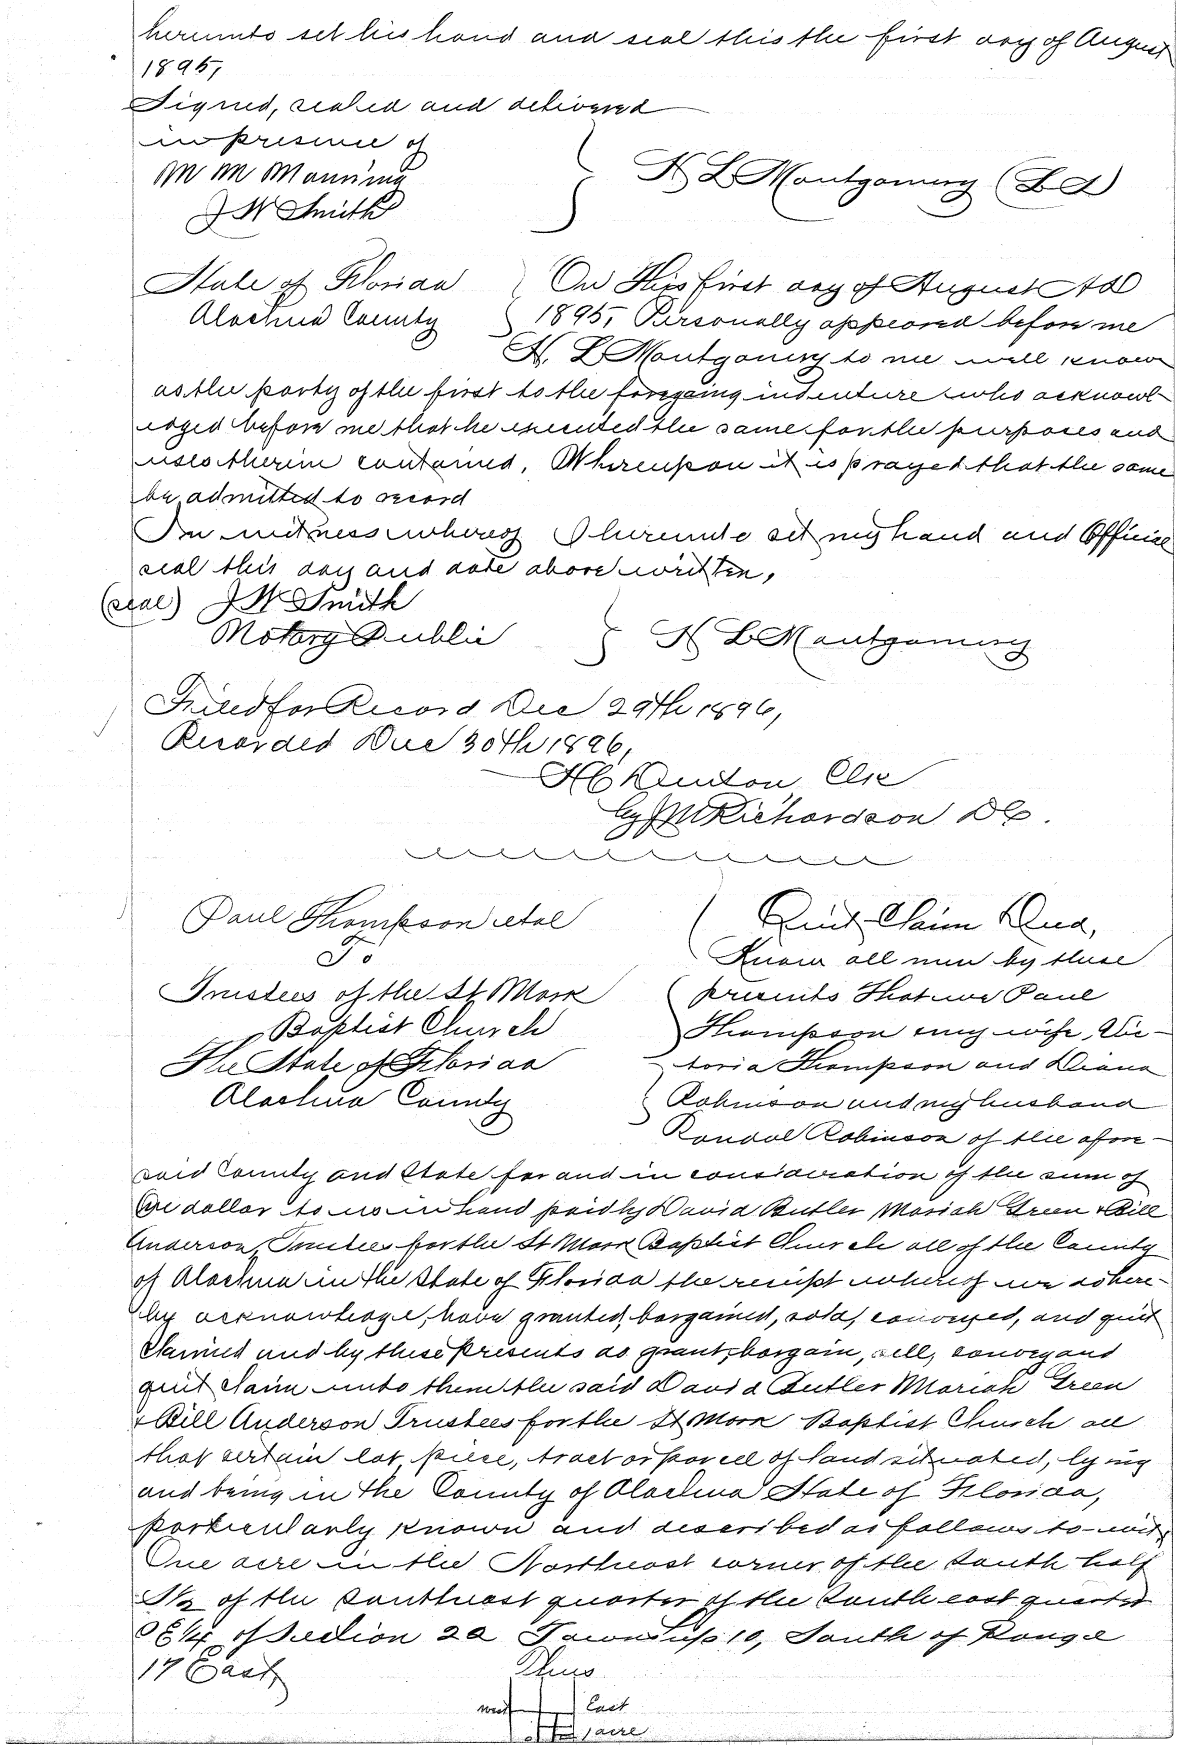 hereunto set his hand and seal this the first day of August
1895,
Signed, sealed and delivered
in presence of
M M Manning
J W Smith
N L Montgomery (L S)
State of Florida
Alachua County
On This first day of August AD
1895, Personally appeared before me
N. L Montgomery to me well know
as the party of the first to the foregoing indenture who acknowl-
edged before me that he executed the same for the purposes and
uses therein contained. Whereupon it is prayed that the same
be admitted to record
In witness whereof I hereunto set my hand and Official
seal this day and date above written,
(seal) J W Smith
Notary Public
N L Montgomery
Filed for Record Dec 29th 1896,
Recorded Dec 30th 1896,
H C Denton Clk
by J M Richardson D C.
Paul Thompson et al
To
Trustees of the St Mark
Baptist Church
The State of Florida
Alachua County
Quit Claim Deed,
Know all men by these
presents That we Paul
Thompson my wife, Vic-
toria Thompson and Diana
Robinson and my husband
Randal Robinson of the afore-
said County and State for and in consideration of the sum of
One dollar to us in hand paid by David Butler Mariah Green & Bill
Anderson, Trustees for the St Mark Baptist Church all of the County
of Alachua in the State of Florida the receipt whereof we do here-
by acknowledge, have granted, bargained, sold, conveyed, and quit
claimed and by these presents do grant, bargain, sell, convey and
quit claim unto them the said David Butler Mariah Green
& Bill Anderson Trustees for the St Mark Baptist Church all
that certain lot, piece, tract or parcell of land situated, lying
and being in the County of Alachua State of Florida,
particularly known and described as follows to-wit,
One acre in the Northeast corner of the South half
S½ of the Southeast quarter of the South east quarter
SE¼ of Section 22 Township 10, South of Range
17 East, Thus
west East
1 acre